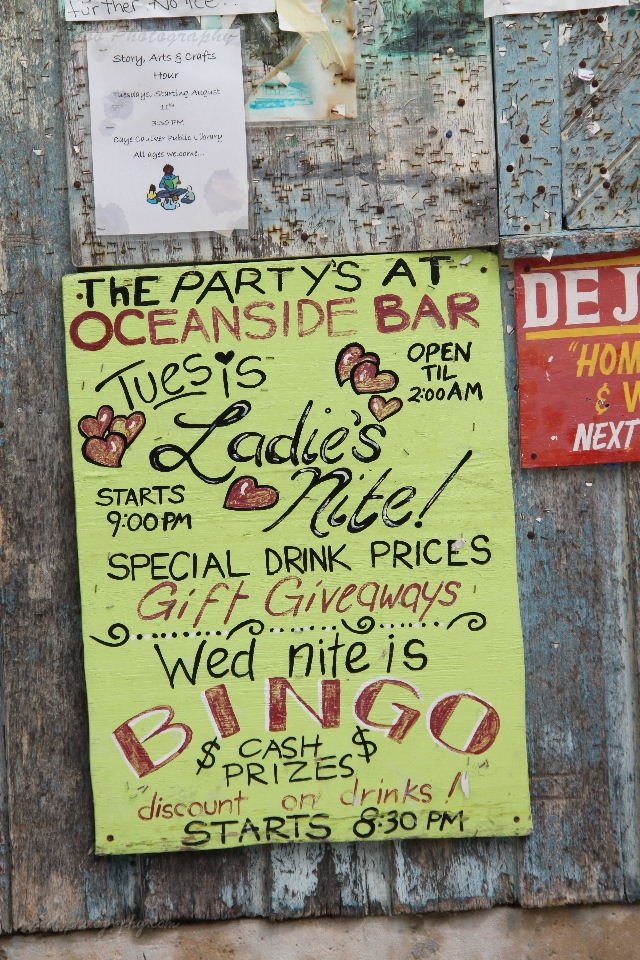 further Notice...
Photography
Story, Arts & Crafts
Hour
Tuesdays, Starting August
11th
3:30 PM
Caye Caulker Public Library
All ages welcome...
THE PARTY'S AT
OCEANSIDE BAR
TUES is
OPEN
TIL
2:00AM
Ladie's
Nite!
STARTS
9:00PM
SPECIAL DRINK PRICES
Gift Giveaways
Wed nite is
BINGO
$ CASH $
PRIZES
discount on drinks!
STARTS 8:30 PM
DE J
"HOM
¢ V
NEXT